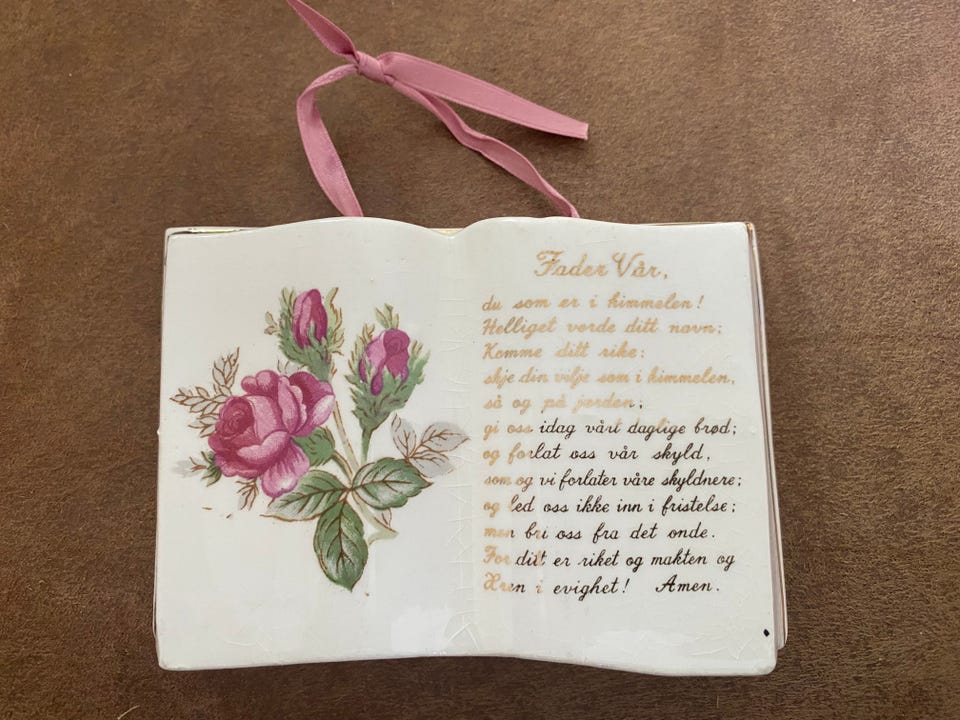 Fader Vår,
du som er i himmelen!
Helliget vorde ditt navn;
Komme ditt rike:
skje din vilje som i himmelen,
så og på jorden;
gi oss idag vårt daglige brød;
og forlat oss vår skyld,
som og vi forlater våre skyldnere;
og led oss ikke inn i fristelse;
men fri oss fra det onde.
For ditt er riket og makten og
Æren i evighet! Amen.